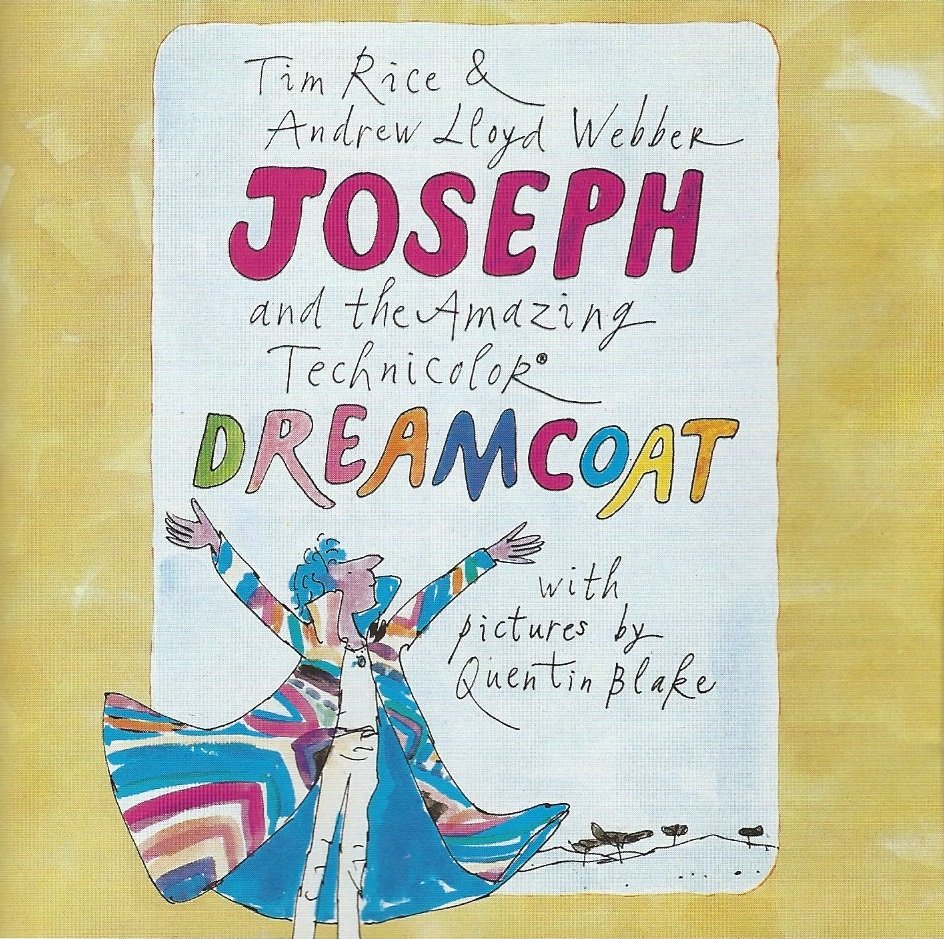 Tim Rice &
Andrew Lloyd Webber
JOSEPH
and the Amazing
Technicolor®
DREAMCOAT
with
pictures by
Quentin Blake